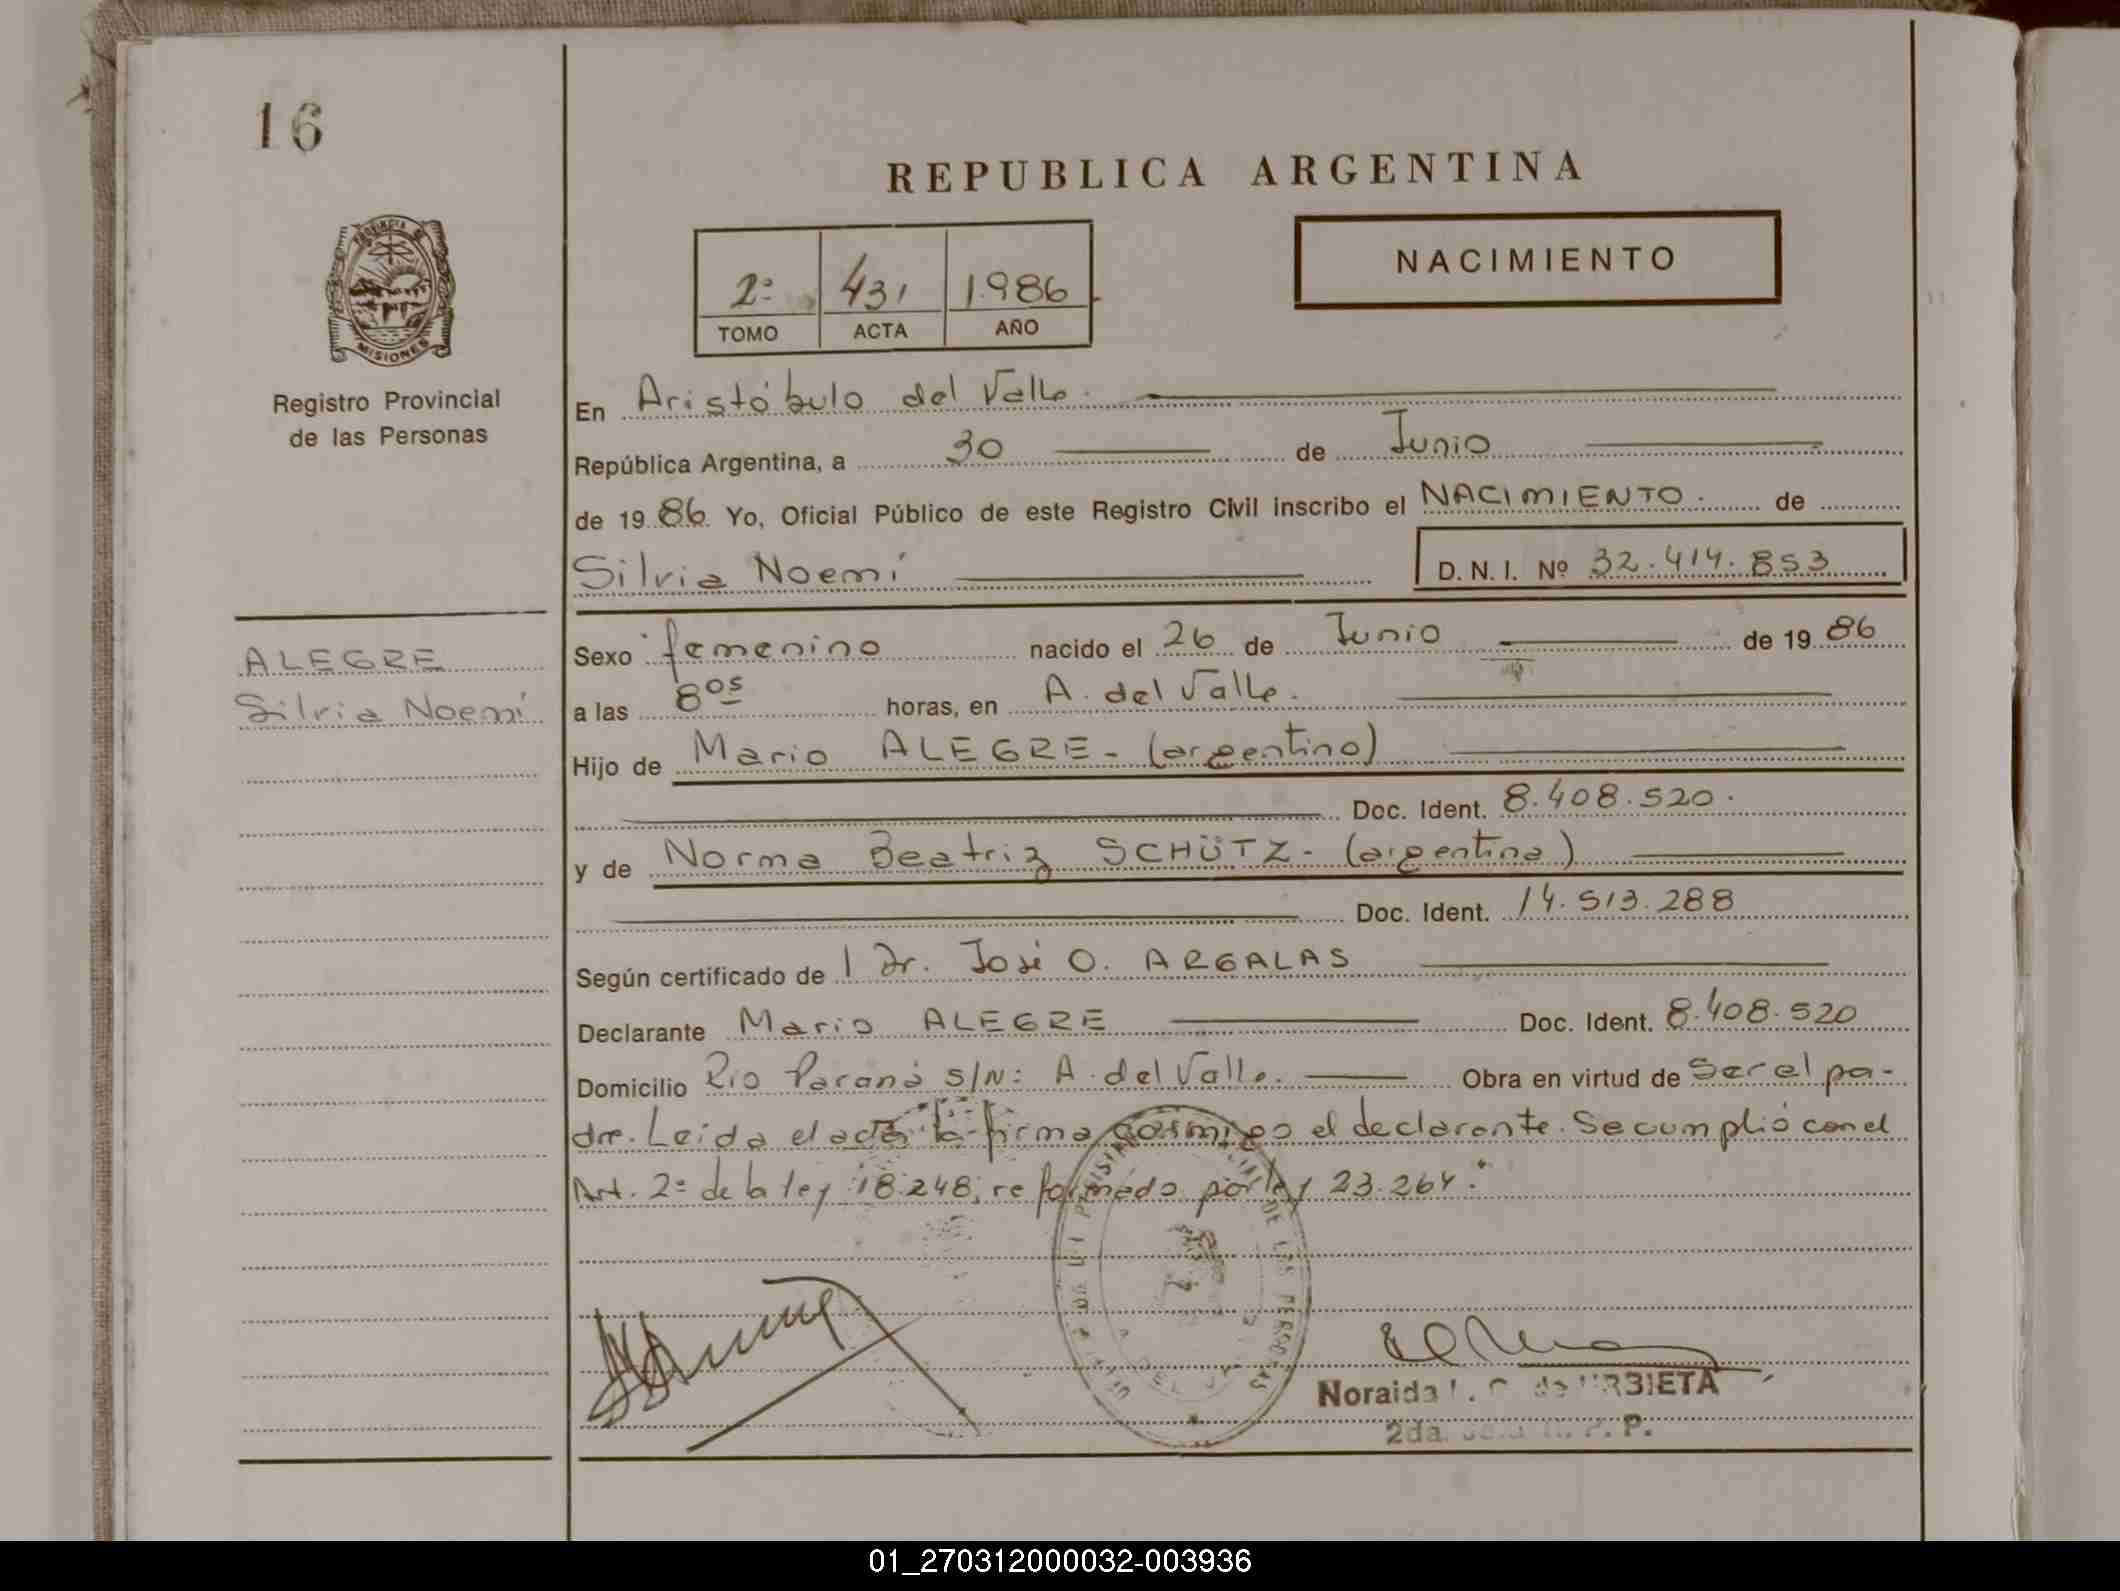 16
REPUBLICA ARGENTINA
NACIMIENTO
2º 431 1.986
TOMO ACTA AÑO
PROVINCIA DE
MISIONES
Registro Provincial
de las Personas
ALEGRE
Silvia Noemí
En Aristóbulo del Valle.
República Argentina, a 30 de Junio
de 1986. Yo, Oficial Público de este Registro Civil inscribo el NACIMIENTO. de
Silvia Noemí D. N. I. Nº 32.414.853
Sexo femenino nacido el 26 de Junio de 1986
a las 8os horas, en A. del Valle.
Hijo de Mario ALEGRE - (argentino)
Doc. Ident. 8.408.520.
y de Norma Beatriz SCHÜTZ - (argentina)
Doc. Ident. 14.513.288
Según certificado de 1 Dr. José O. ARGALAS
Declarante Mario ALEGRE Doc. Ident. 8.408.520
Domicilio Río Paraná S/N: A. del Valle. Obra en virtud de Ser el pa-
dre. Leída el acta la firma conmigo el declarante. Se cumplió con el
Art. 2º de la ley 18.248, reformado por ley 23.264.
Noraida de URBIETA
2da. P.
01_270312000032-003936